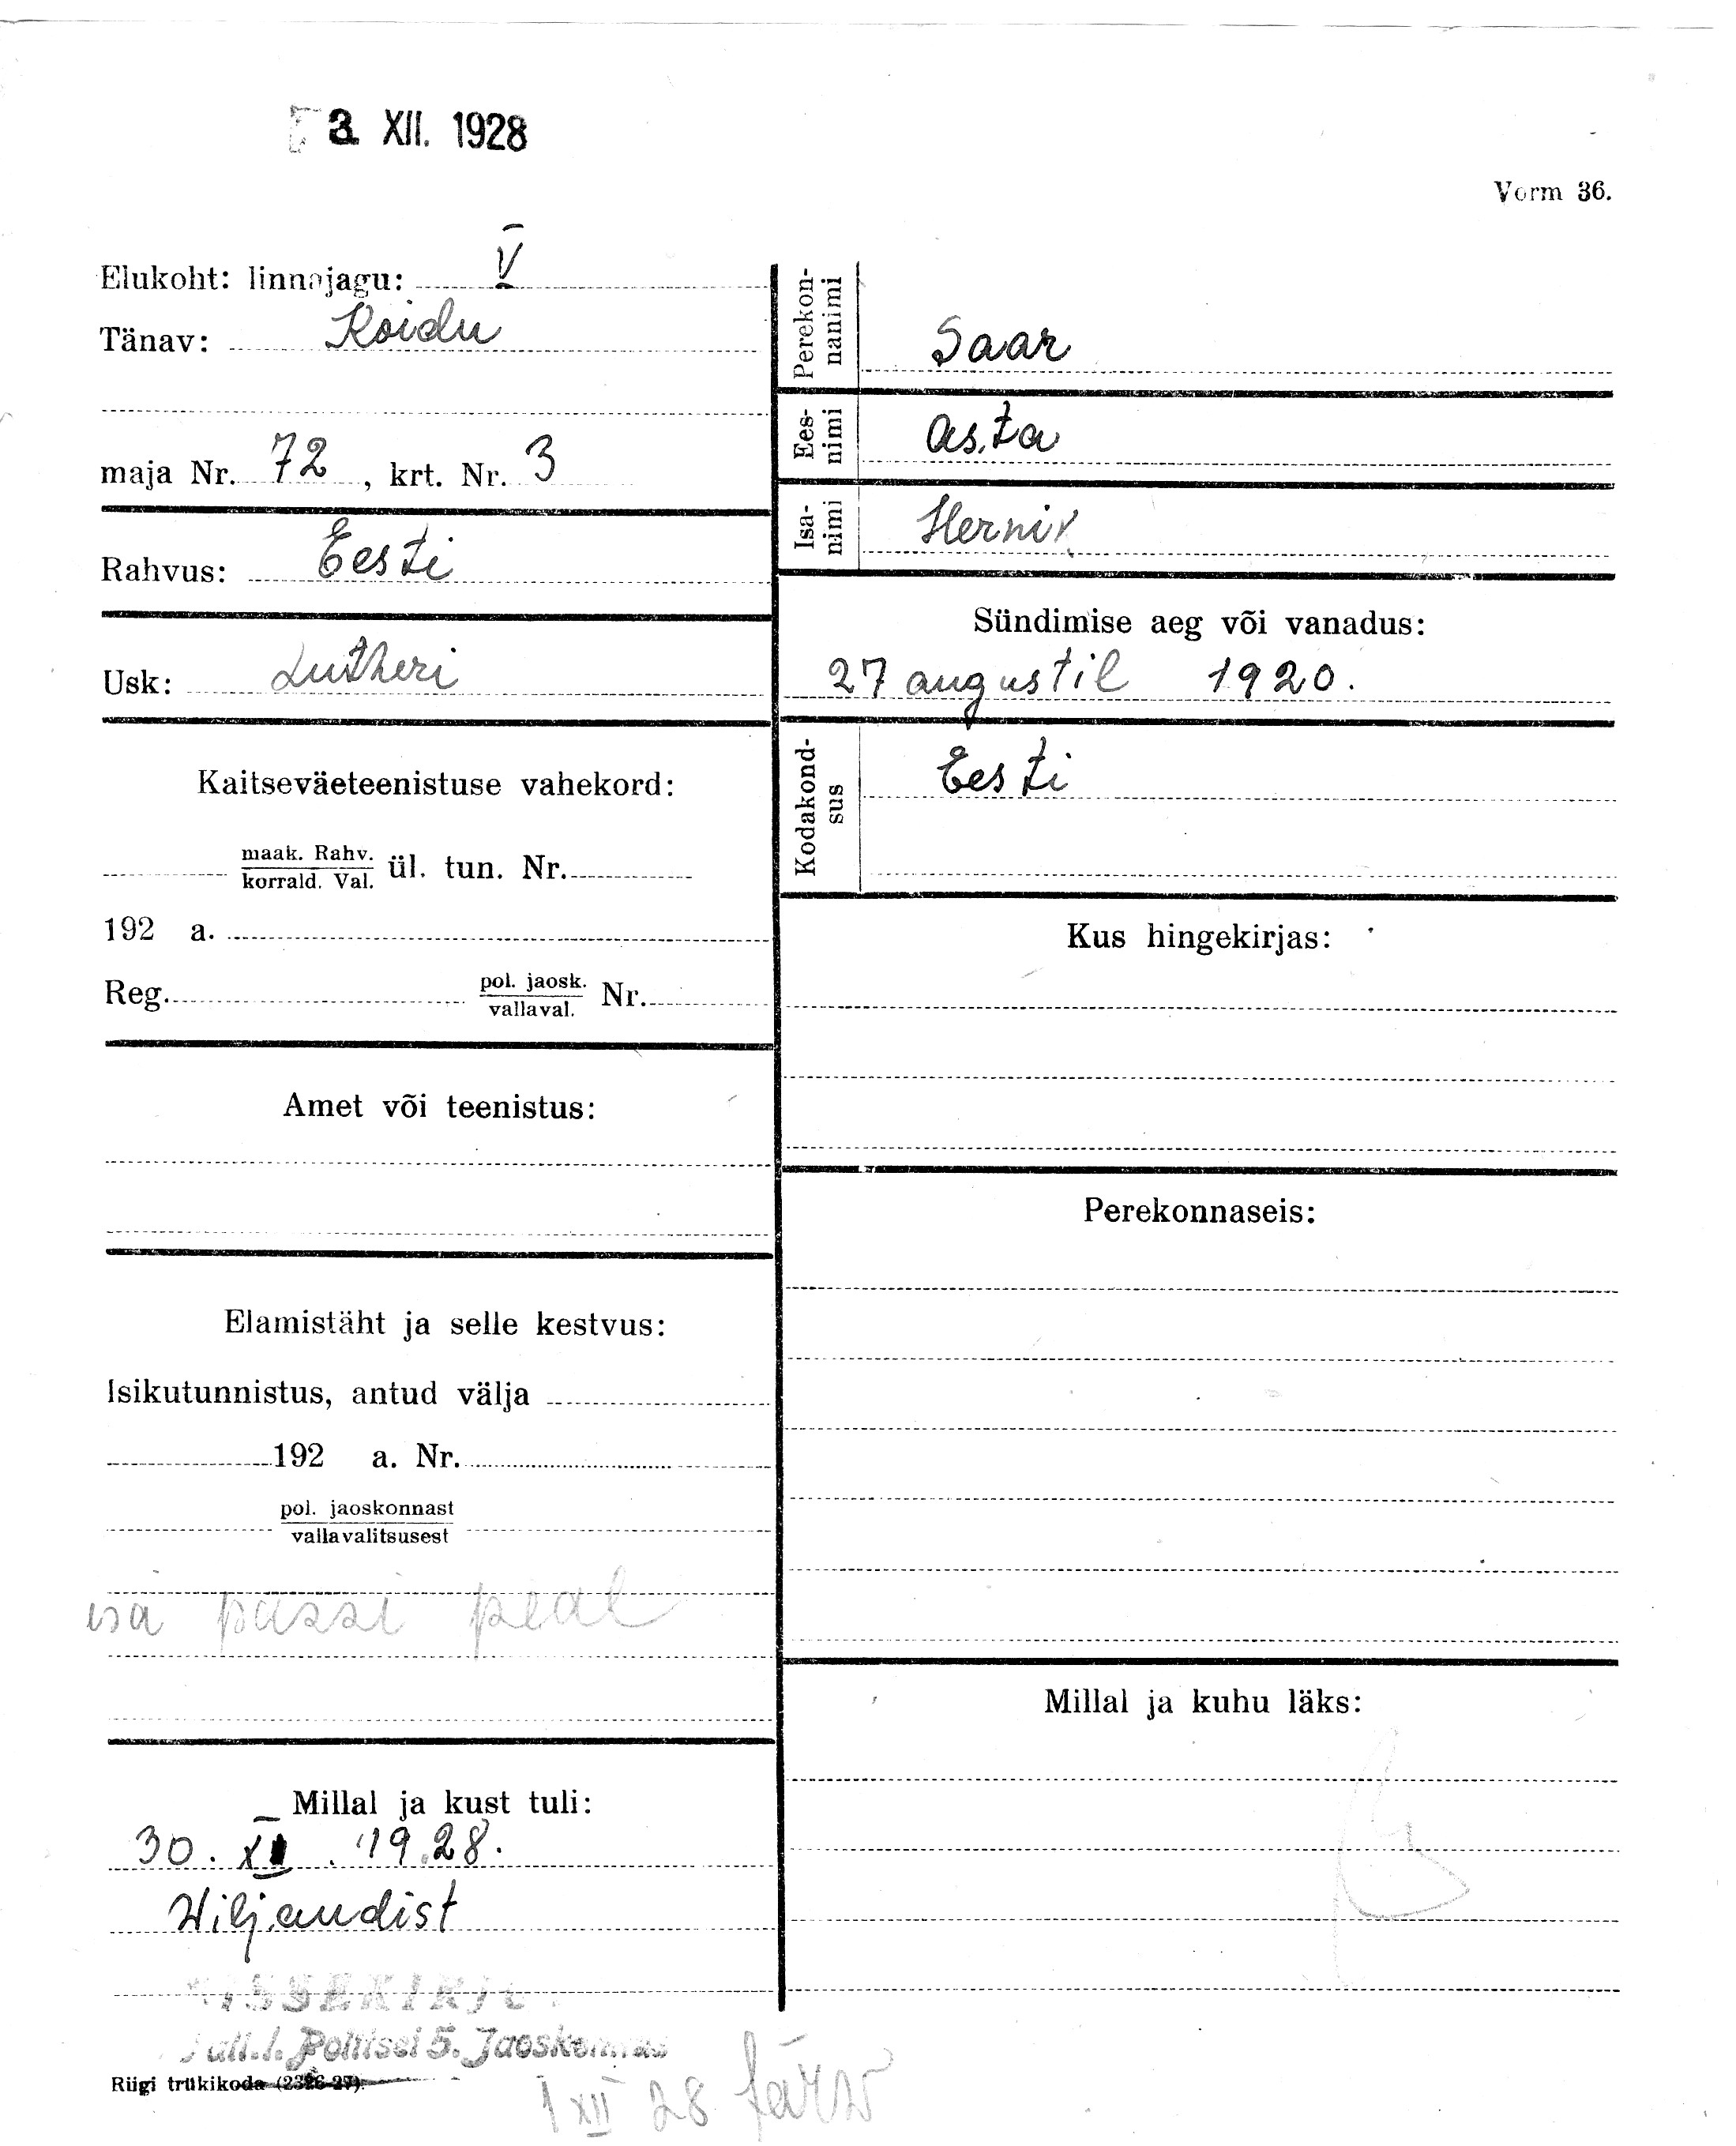 3. XII. 1928
Vorm 36.
Elukoht: linnajagu: V
Tänav: Koidu
maja Nr. 72, krt. Nr. 3
Rahvus: Eesti
Usk: Lutheri
Kaitseväeteenistuse vahekord:
maak. Rahv.
korrald. Val. ül. tun. Nr.
192 a.
Reg. pol. jaosk. Nr.
vallaval.
Amet või teenistus:
Elamistäht ja selle kestvus:
Isikutunnistus, antud välja
192 a. Nr.
pol. jaoskonnast
vallavalitsusest
isa passi peal
Millal ja kust tuli:
30. XI. 1928.
Wiljandist
Politsei 5. Jaoskonnas
Riigi trükikoda (2326-27).
1 XII 28
Perekon-
nanimi
Saar
Ees-
nimi
Asta
Isa-
nimi
Hernik
Sündimise aeg või vanadus:
27 augustil 1920.
Kodakond-
sus
Eesti
Kus hingekirjas:
Perekonnaseis:
Millal ja kuhu läks: